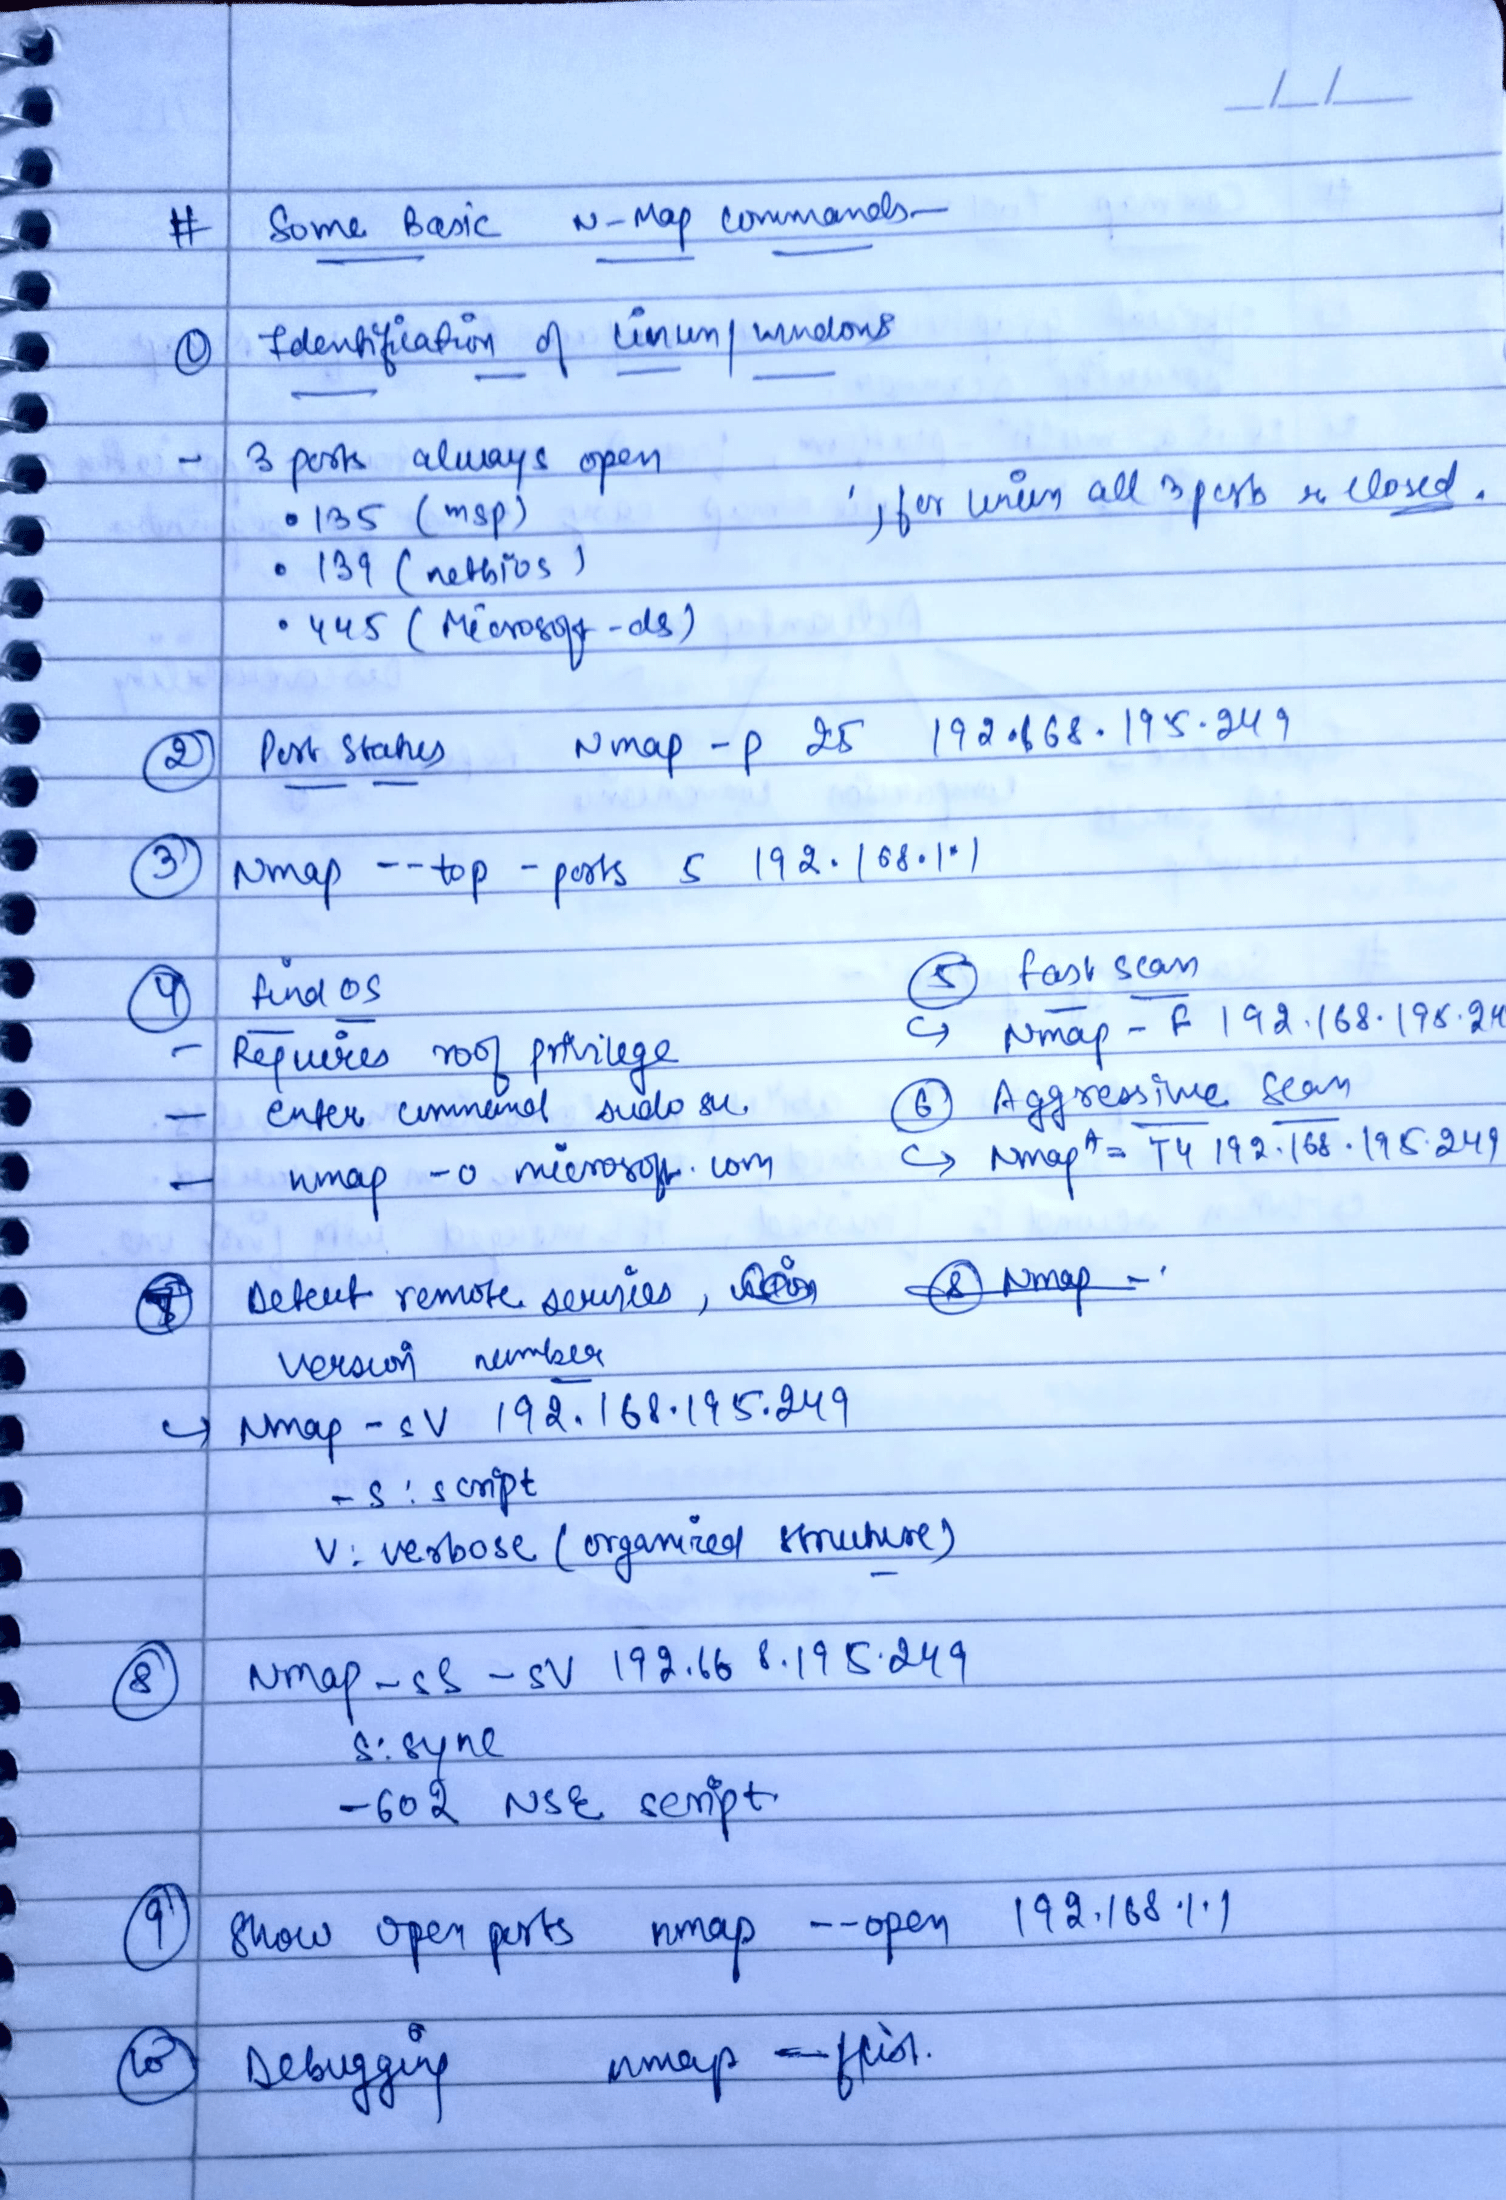 # Some Basic N-Map commands
① Identification of linux/windows
- 3 ports always open
• 135 (msp) ; for linux all 3 ports r closed.
• 139 (netbios)
• 445 (Microsoft-ds)
② Port States Nmap -p 25 192.168.195.249
③ Nmap --top-ports 5 192.168.1.1
④ find OS
- Requires root privilege
- enter command sudo su
- nmap -o microsoft.com
⑤ fast scan
↪ Nmap -F 192.168.195.24
⑥ Aggressive Scan
↪ Nmap A- T4 192.168.195.249
⑦ Detect remote services,
version number
↪ Nmap -sV 192.168.195.249
⑧ Nmap -
-s: script
V: verbose (organized structure)
⑧ Nmap -sS -sV 192.168.195.249
S: sync
-602 NSE script
⑨ Show open ports nmap --open 192.168.1.1
⑩ Debugging nmap